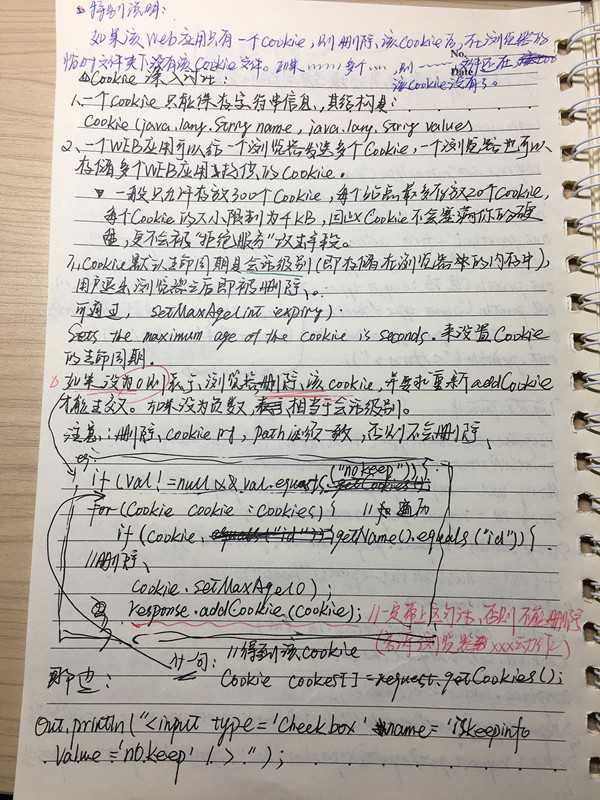 特别说明:
如果该Web应用只有一个Cookie,则删除该Cookie后,在浏览器的
临时文件夹下没有该Cookie文件。如果……多个……,则……文件还在
No.
Date
该Cookie没有了。
Cookie深入讨论:
1、一个Cookie只能保存字符串信息,其结构是:
Cookie(java.lang.String name, java.lang.String values
2、一个WEB应用可以给一个浏览器发送多个Cookie,一个浏览器也可以
存储多个WEB应用提供的Cookie。
一般只允许存放300个Cookie,每个站点最多存放20个Cookie,
每个Cookie的大小限制为4KB,因此Cookie不会塞满你的硬
盘,更不会被"拒绝服务"攻击手段。
3、Cookie默认生命周期是会话级别(即存储在浏览器的内存中),
用户退出浏览器之后即被删除。
可通过, setMaxAge(int expiry)
Sets the maximum age of the cookie is seconds. 来设置Cookie
的生命周期.
如果设为0则表示,浏览器删除该cookie,并要求重新addCookie
才能生效。如果设为负数,相当于会话级别。
注意:删除cookie时,path必须一致,否则不会删除
eg:
if (val != null && val.equals("nokeep")) {
for (Cookie cookie : cookies) { //知遍历
if (cookie.getName().equals("id")) {
//删除
cookie.setMaxAge(0);
response.addCookie(cookie); //一定带上这句话,否则不能删除
什一句: //得到该cookie
Cookie cookes[] = request.getCookies();
即也:
Out.println("<input type='Checkbox' name='iskeepinfo
value='nokeep' />");